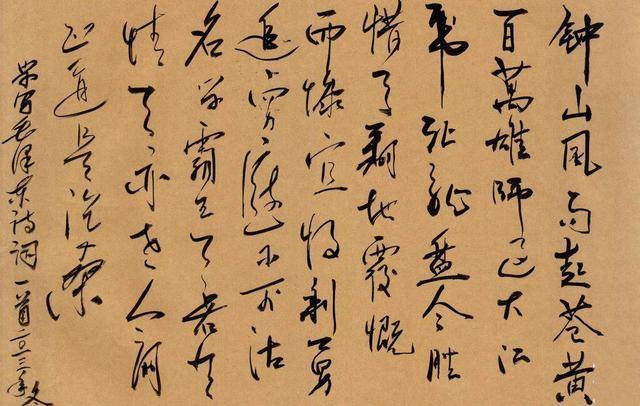 钟山風雨起苍黄
百萬雄師过大江
虎踞龍盘今胜
惜天翻地覆慨
而慷宜将剩勇
追穷寇不可沽
名学霸王天若有
情天亦老人间
正道是沧桑
写毛泽东诗词一首二〇一三年